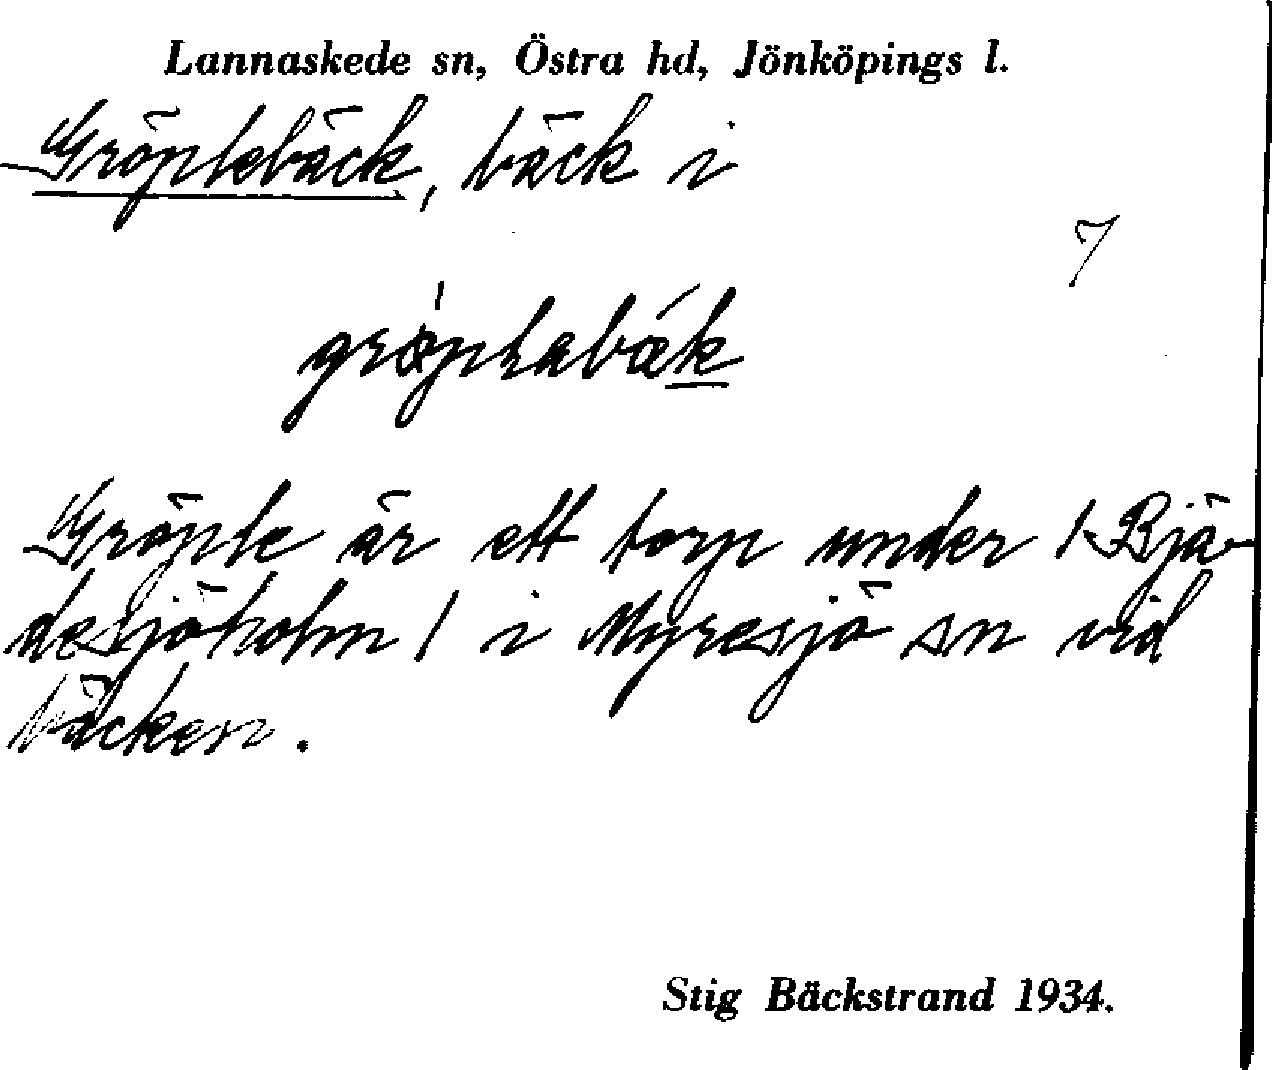 Lannaskede sn, Östra hd, Jönköpings l.
Gröplebäck, bäck i
7
gröplabæk
Gröple är ett torp under (Bjä-
desjöholm) i Myresjö sn vid
bäcken.
Stig Bäckstrand 1934.